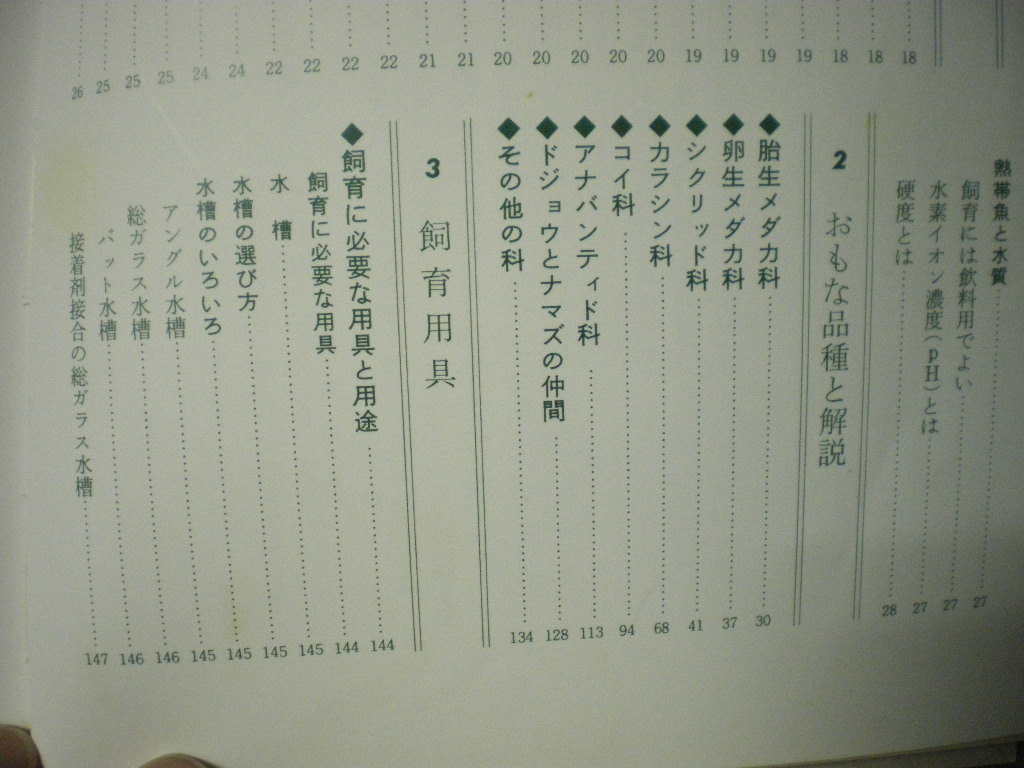 18
18
18
19
19
19
19
20
20
20
20
20
21
21
22
22
22
22
24
24
25
25
25
26
熱帯魚と水質……27
飼育には飲料用でよい……27
水素イオン濃度(pH)とは……27
硬度とは……28
2 おもな品種と解説
◆胎生メダカ科……30
◆卵生メダカ科……37
◆シクリッド科……41
◆カラシン科……68
◆コイ科……94
◆アナバンティド科……113
◆ドジョウとナマズの仲間……128
◆その他の科……134
3 飼育用具
◆飼育に必要な用具と用途……144
飼育に必要な用具……144
水 槽……145
水槽の選び方……145
水槽のいろいろ……145
アングル水槽……145
総ガラス水槽……146
バット水槽……146
接着剤接合の総ガラス水槽……147